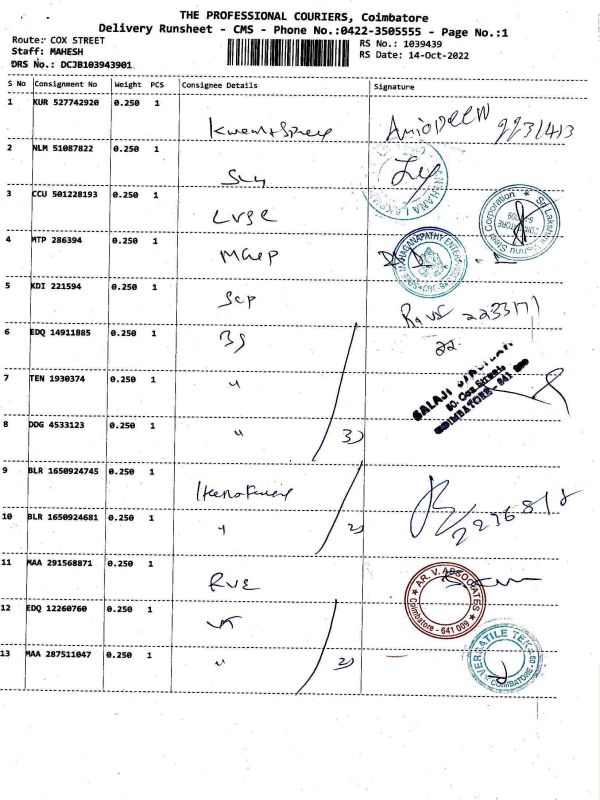 THE PROFESSIONAL COURIERS, Coimbatore
Delivery Runsheet - CMS - Phone No.:0422-3505555 - Page No.:1
Route: COX STREET
Staff: MAHESH
DRS No.: DCJB103943901
RS No.: 1039439
RS Date: 14-Oct-2022
S No Consignment No Weight PCS Consignee Details Signature
1 KUR 527742920 0.250 1
2 NLM 51087822 0.250 1
3 CCU 501228193 0.250 1
LVSE
4 MTP 286394 0.250 1
5 KDI 221594 0.250 1
Scp
6 EDQ 14911885 0.250 1
BS
7 TEN 1930374 0.250 1
"
8 DDG 4533123 0.250 1
" 3)
9 BLR 1650924745 0.250 1
10 BLR 1650924681 0.250 1
" 2)
11 MAA 291568871 0.250 1
RVE
AR. V. ASSOCIATES
Coimbatore - 641 009
12 EDQ 12260760 0.250 1
VT
13 MAA 287511047 0.250 1
" 2)
VERSATILE TEK
COIMBATORE